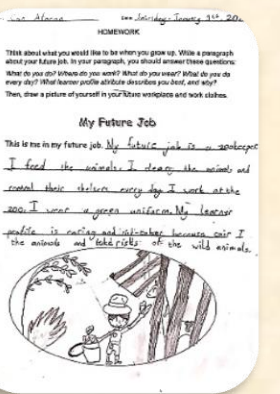 HOMEWORK
Think about what you would like to be when you grow up. Write a paragraph
about your future job. In your paragraph, you should answer these questions:
What do you do? Where do you work? What do you wear? What do you do
every day? What learner profile attribute describes you best, and why?
Then, draw a picture of yourself in your future workplace and work clothes.
My Future Job
This is me in my future job. My future job is a zookeeper
I feed the animals. I the animals and
their every day I work at the
zoo. I wear a green uniform. My learner
profile is caring and because I
the animals and risks of the wild animals.